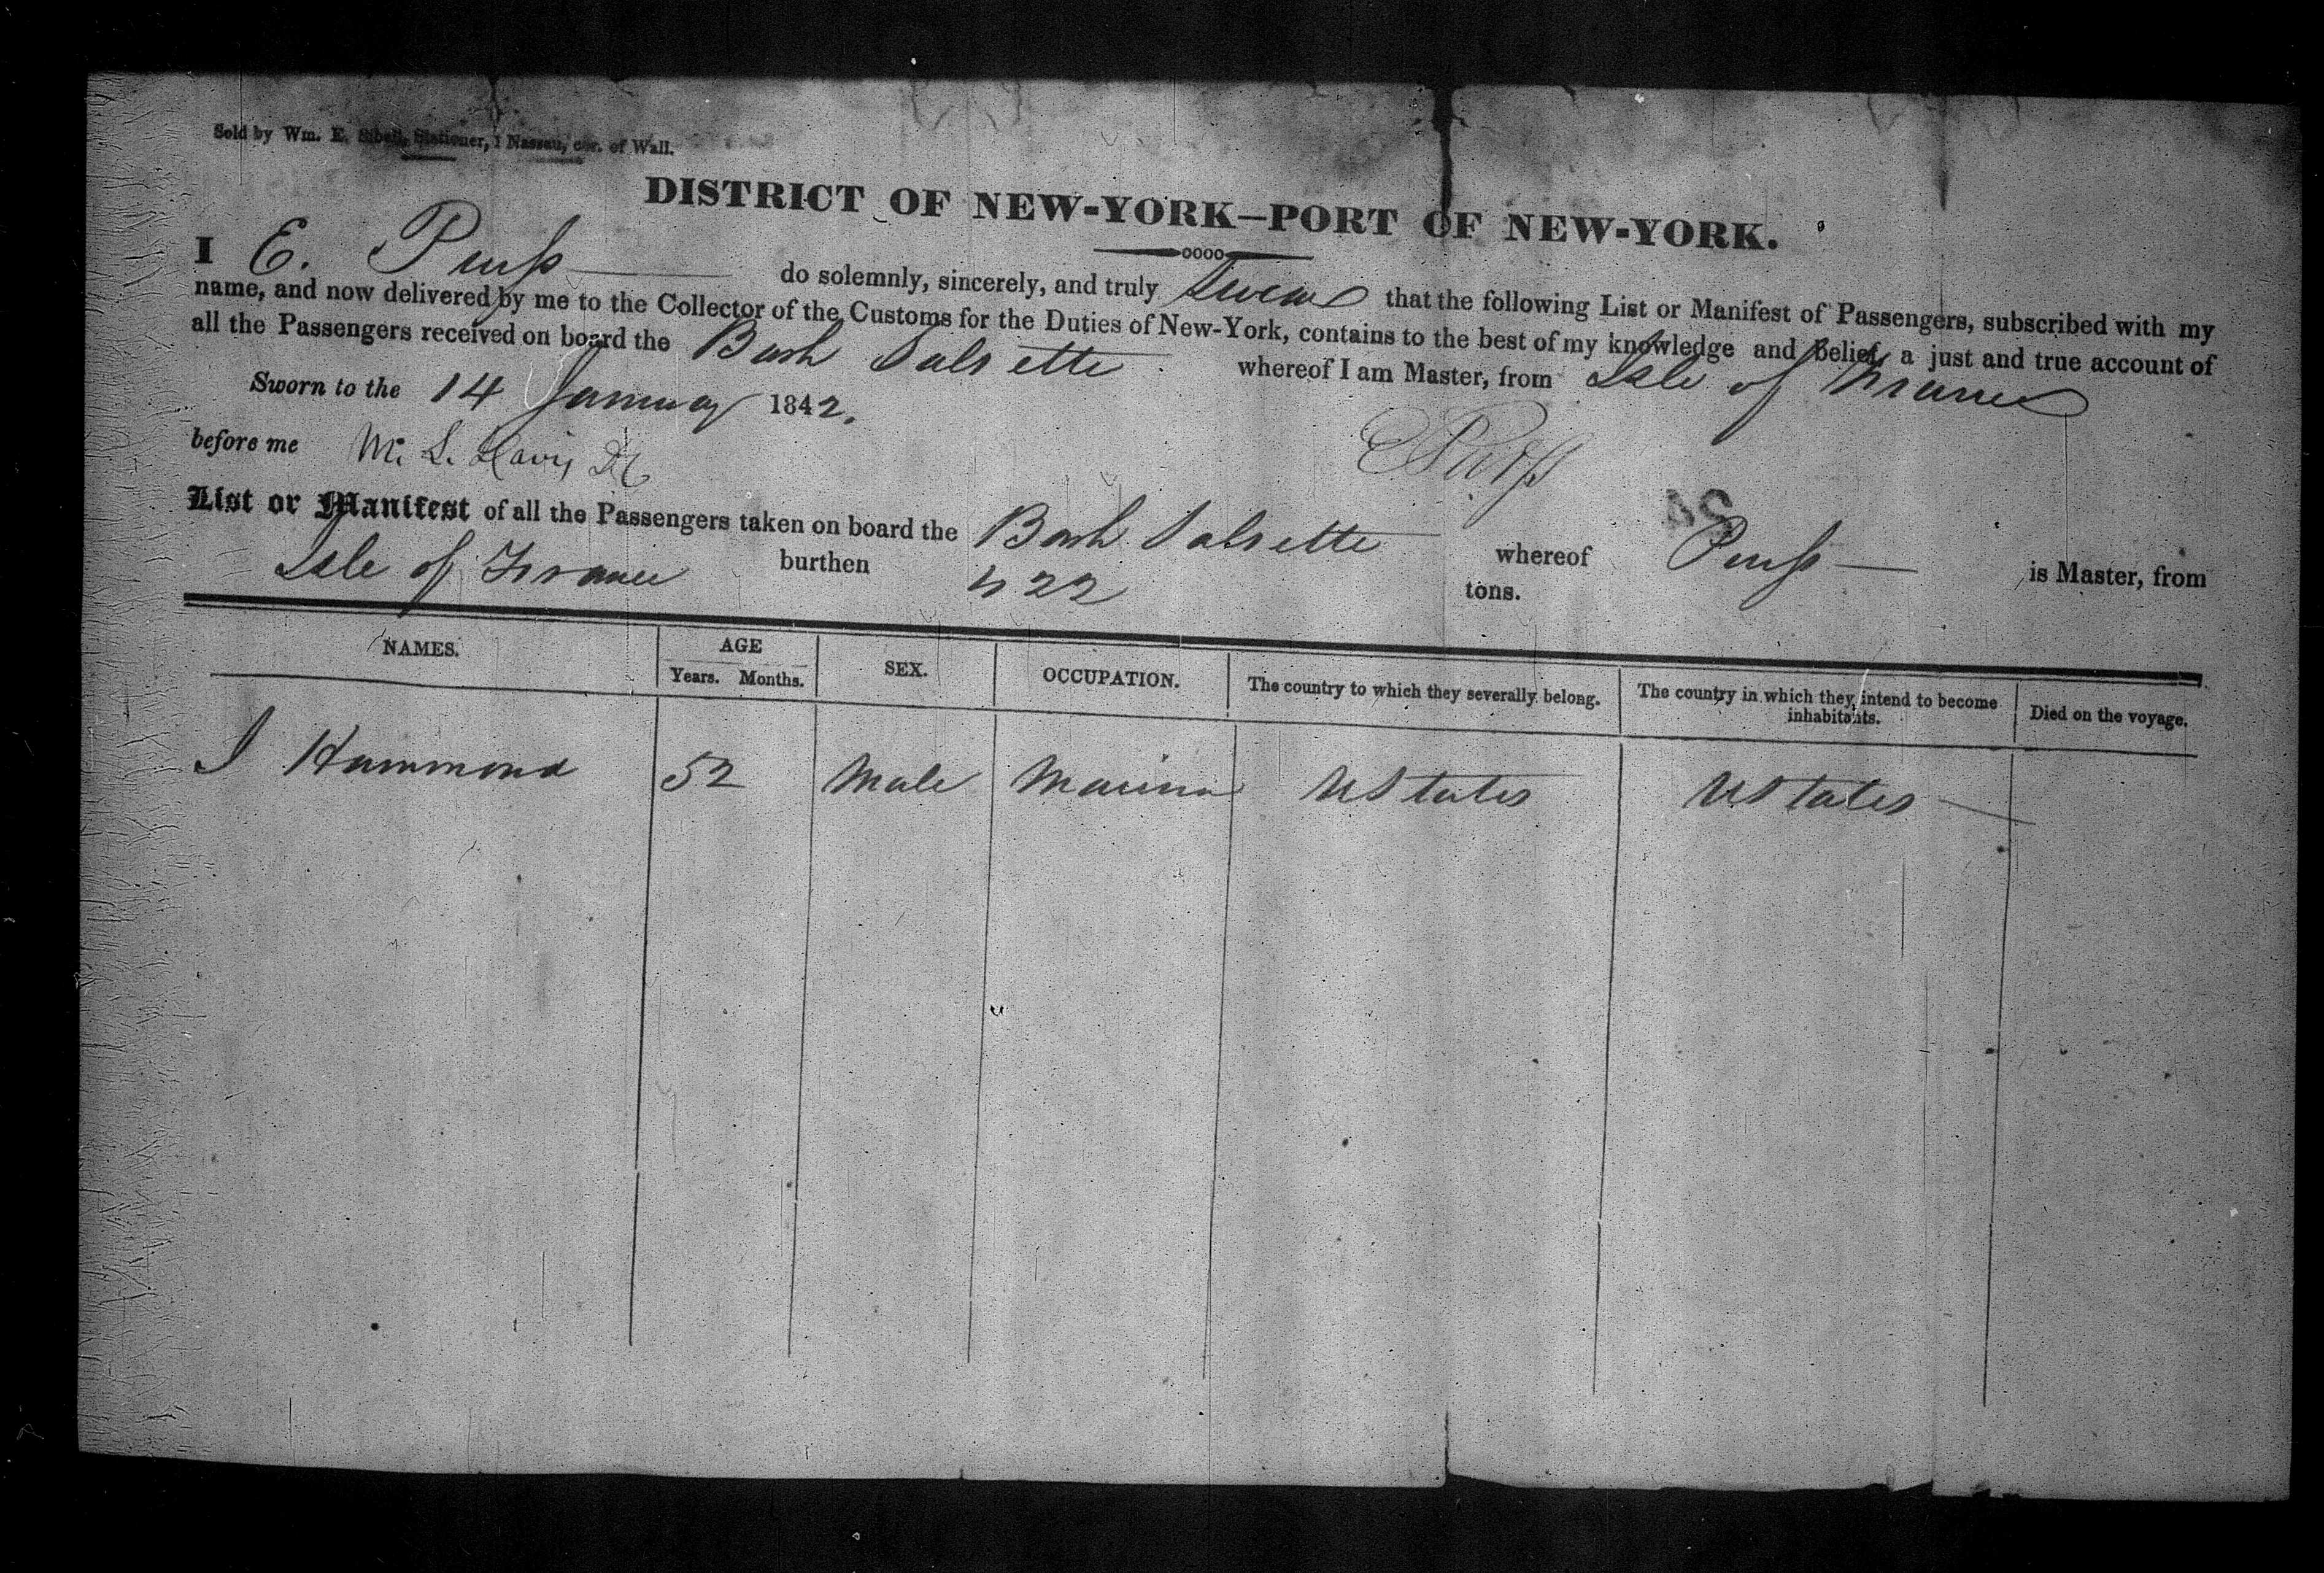 Sold by Wm. E. Sibell, Stationer, 1 Nassau, cor. of Wall.
DISTRICT OF NEW-YORK—PORT OF NEW-YORK.
I E. do solemnly, sincerely, and truly swear that the following List or Manifest of Passengers, subscribed with my
name, and now delivered by me to the Collector of the Customs for the Duties of New-York, contains to the best of my knowledge and belief, a just and true account of
all the Passengers received on board the Bark Salsette whereof I am Master, from Isle of France
Sworn to the 14 January 1842.
before me M. L. Davis
List or Manifest of all the Passengers taken on board the Bark Salsette whereof is Master, from
Isle of France burthen 422 tons.
NAMES. AGE SEX. OCCUPATION. The country to which they severally belong. The country in which they intend to become inhabitants. Died on the voyage.
Years. Months.
I Hammond 52 Male Mariner UStates UStates